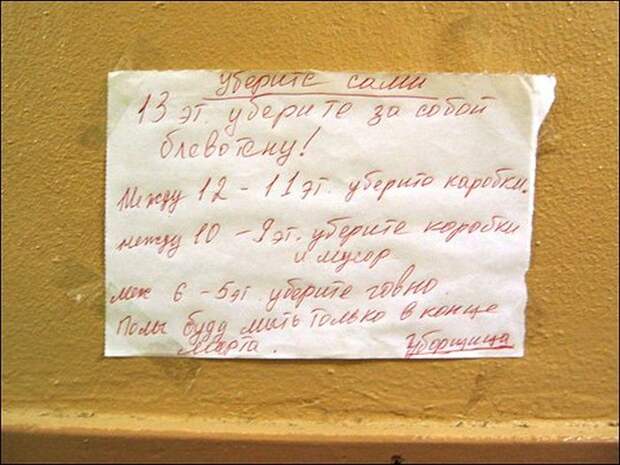 уберите сами
13 эт. уберите за собой
блевотену!
Между 12 - 11 эт. уберите каробки.
между 10 - 9 эт. уберите коробки
и мусор
меж 6 - 5 эт уберите говно.
Полы буду мыть только в конце
Марта.
Уборщица